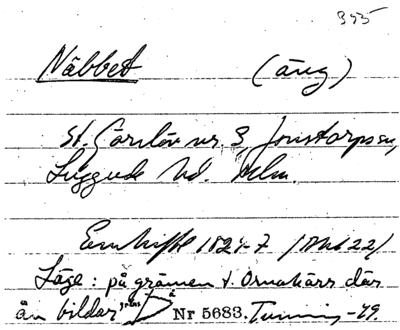 335
Näbbet (äng)
St. Görslöv nr. 3, Jonstorps sn,
Luggude hd. Mlm.
Enskifte 1821-7 (Akt 22)
Läge: på gränsen t. Ornakärr där
ån bildar Nr 5683. Tuning -49.